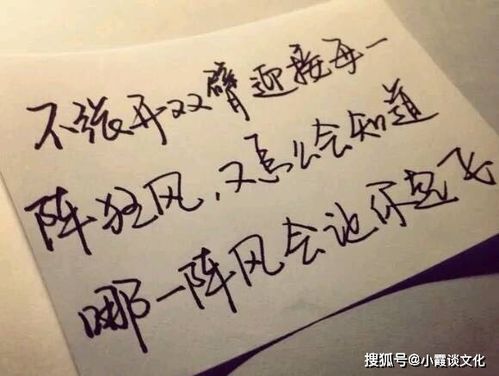 不张开双臂迎接每一
阵狂风,又怎么会知道
哪一阵风会让你起飞
搜狐号@小霞谈文化